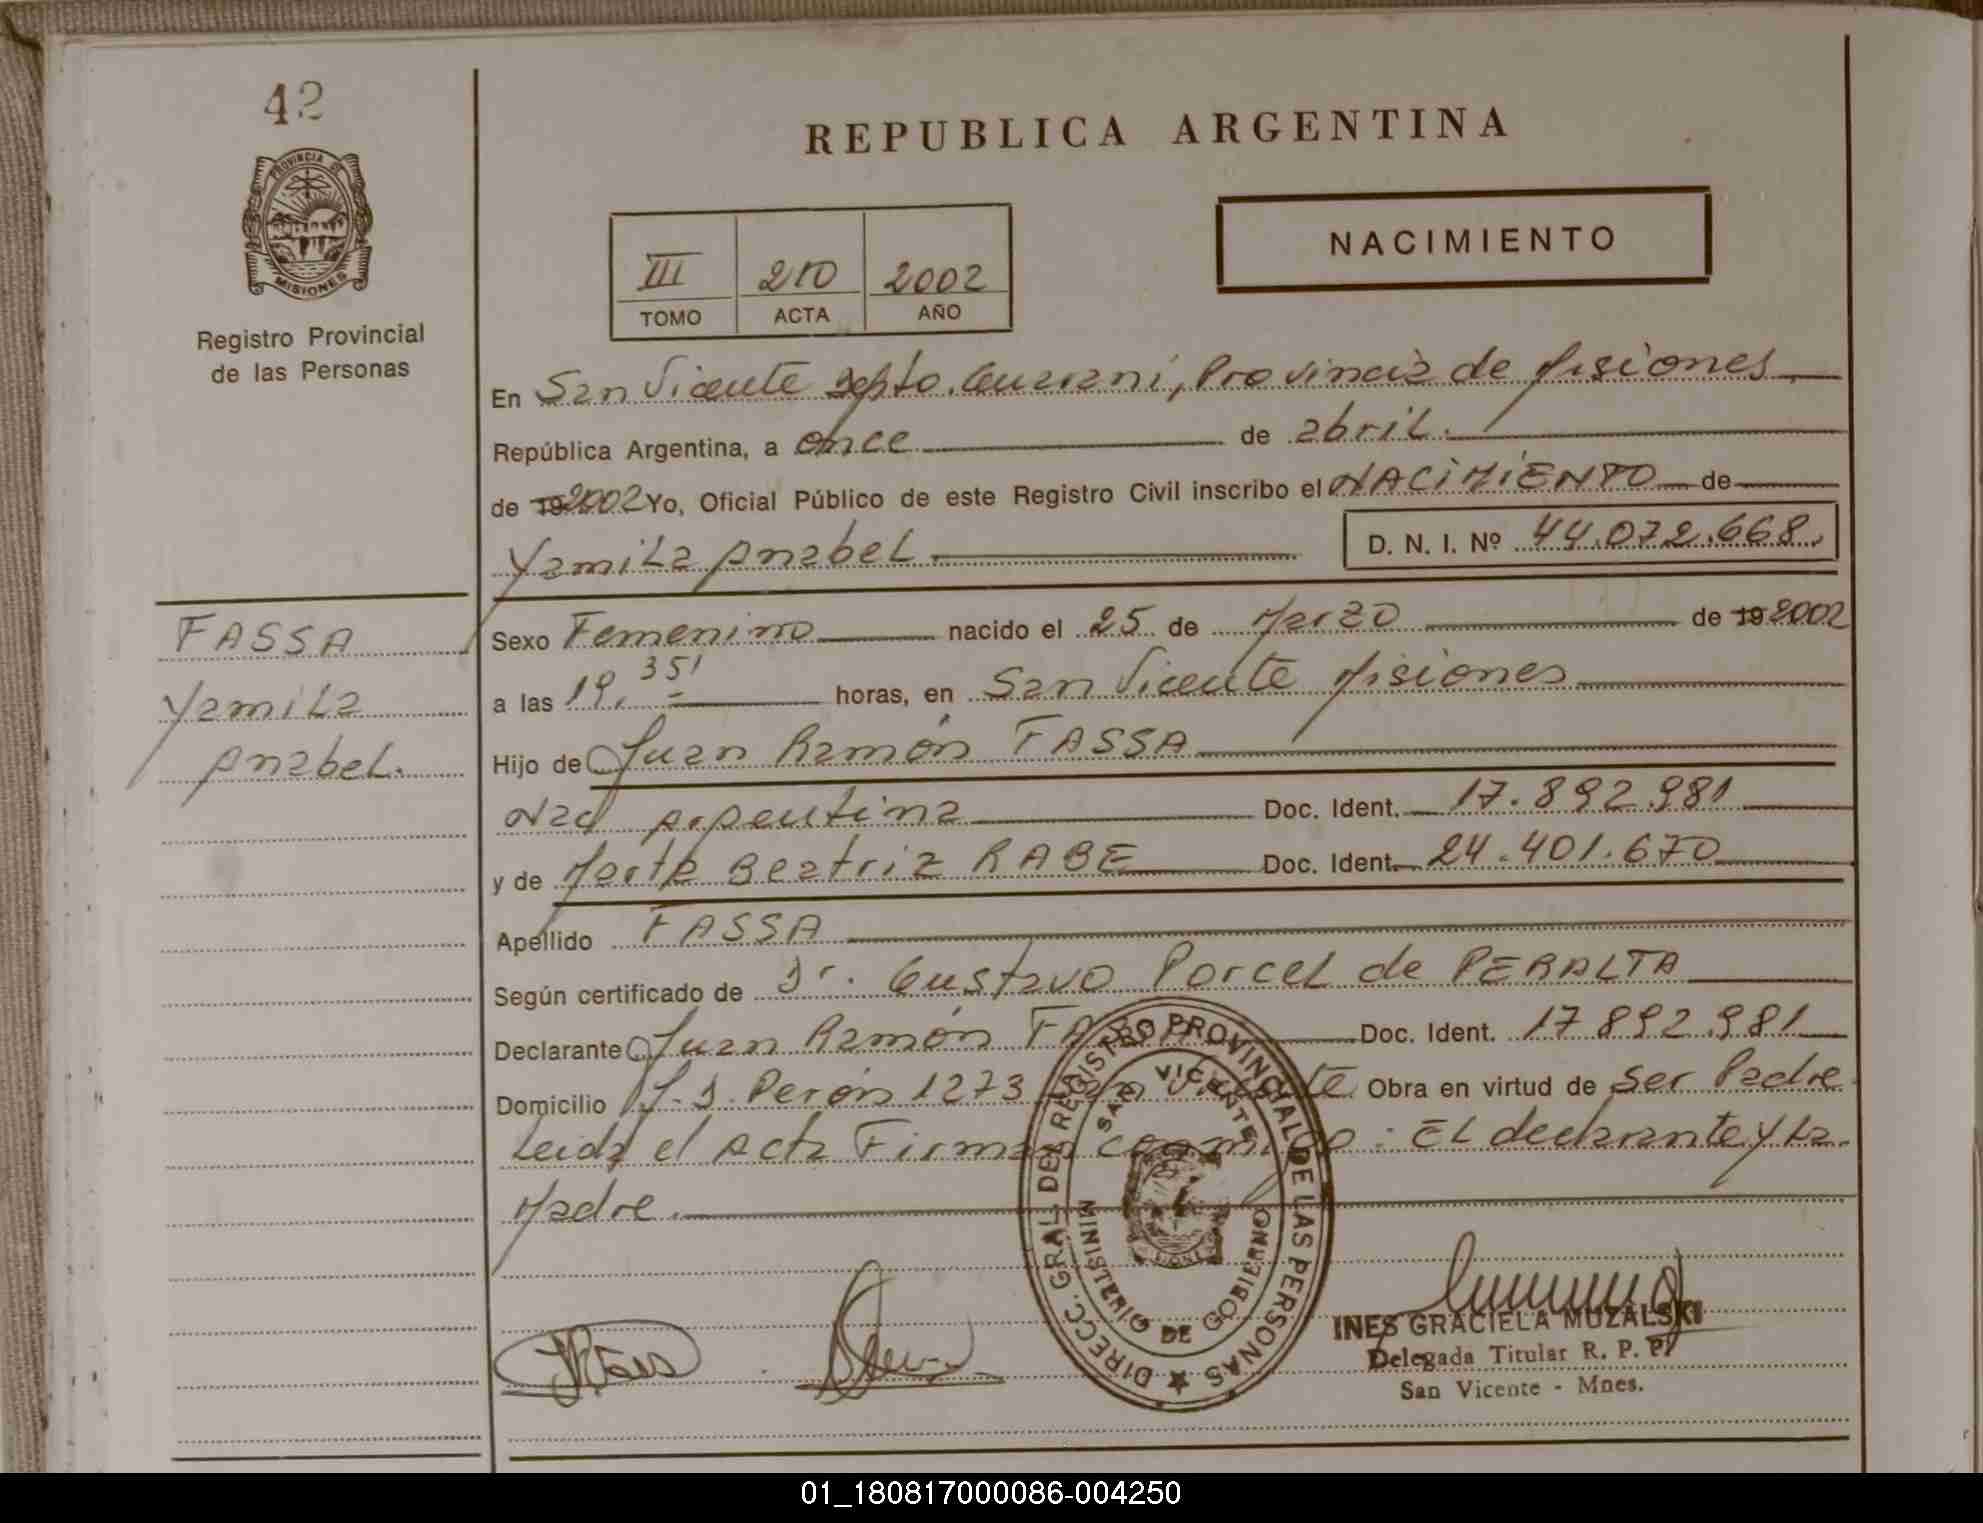 42
PROVINCIA DE
MISIONES
Registro Provincial
de las Personas
REPUBLICA ARGENTINA
NACIMIENTO
III 210 2002
TOMO ACTA AÑO
En San Vicente Dpto. Guarani, Provincia de Misiones
República Argentina, a once de abril.
de 19 2002 Yo, Oficial Público de este Registro Civil inscribo el NACIMIENTO de
Yamila Anabel D. N. I. Nº 44.072.668.
FASSA
Yamila
Anabel.
Sexo Femenino nacido el 25 de Marzo de 19 2002
a las 19,35' horas, en San Vicente Misiones
Hijo de Juan Ramón FASSA
Nac Argentina Doc. Ident. 17.892.981
y de Marta Beatriz RABE Doc. Ident. 24.401.670
Apellido FASSA
Según certificado de Dr. Gustavo Porcel de PERALTA
Declarante Juan Ramón FASSA Doc. Ident. 17892.981
Domicilio J.D. Perón 1273 San Vicente Obra en virtud de ser Padre
Leida el Acta Firman conmigo: El declarante y La
Madre.
DIRECC. GRAL. DEL REGISTRO PROVINCIAL DE LAS PERSONAS
SAN VICENTE
MINISTERIO DE GOBIERNO
INES GRACIELA MUZALSKI
Delegada Titular R. P. P.
San Vicente - Mnes.
01_180817000086-004250